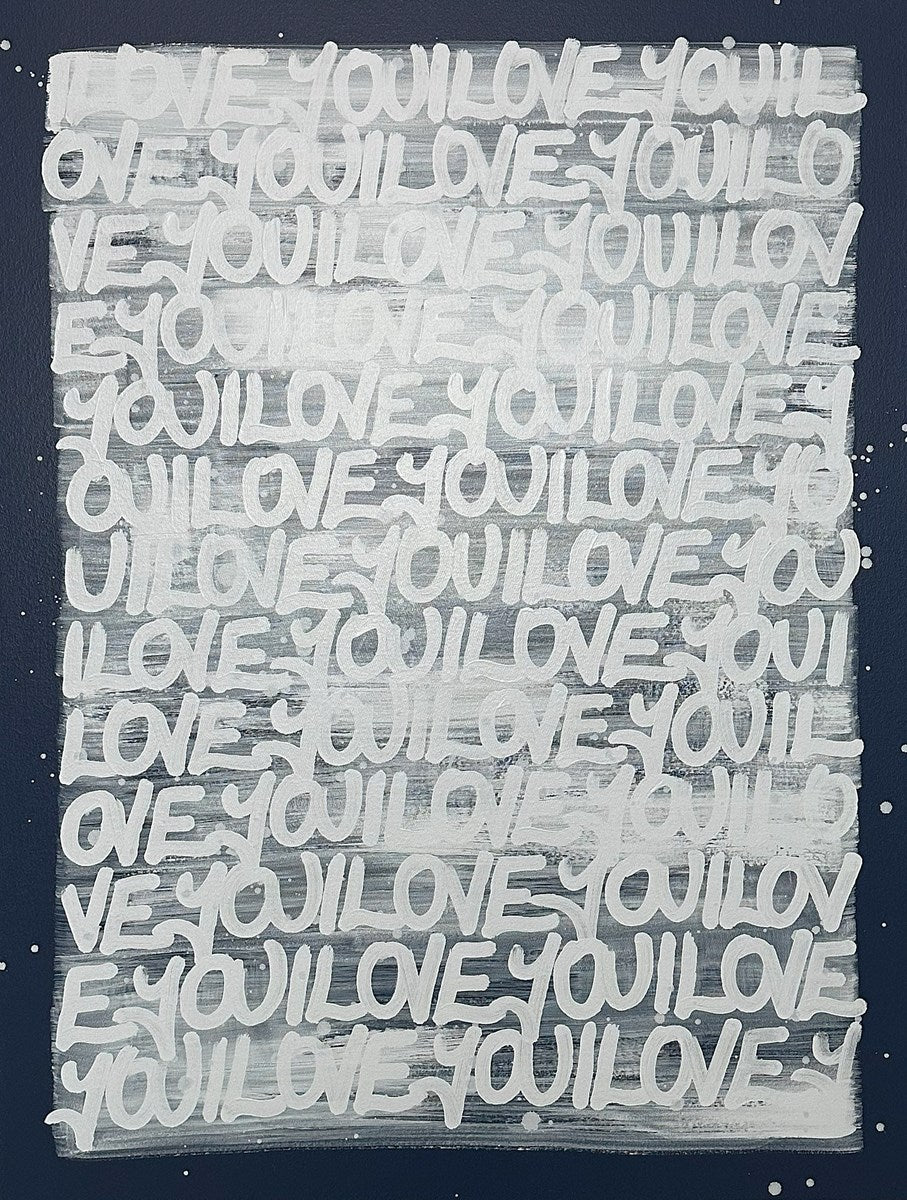 ILOVE YOUILOVE YOUIL
OVE YOUILOVE YOUILO
VE YOUILOVE YOUILOV
E YOUILOVE YOUILOVE
YOUILOVE YOUILOVE Y
OUILOVE YOUILOVE YO
UILOVE YOUILOVE YOU
ILOVE YOUILOVE YOUI
LOVE YOUILOVE YOUIL
OVE YOUILOVE YOUILO
VE YOUILOVE YOUILOV
E YOUILOVE YOUILOVE
YOUILOVE YOUILOVE Y